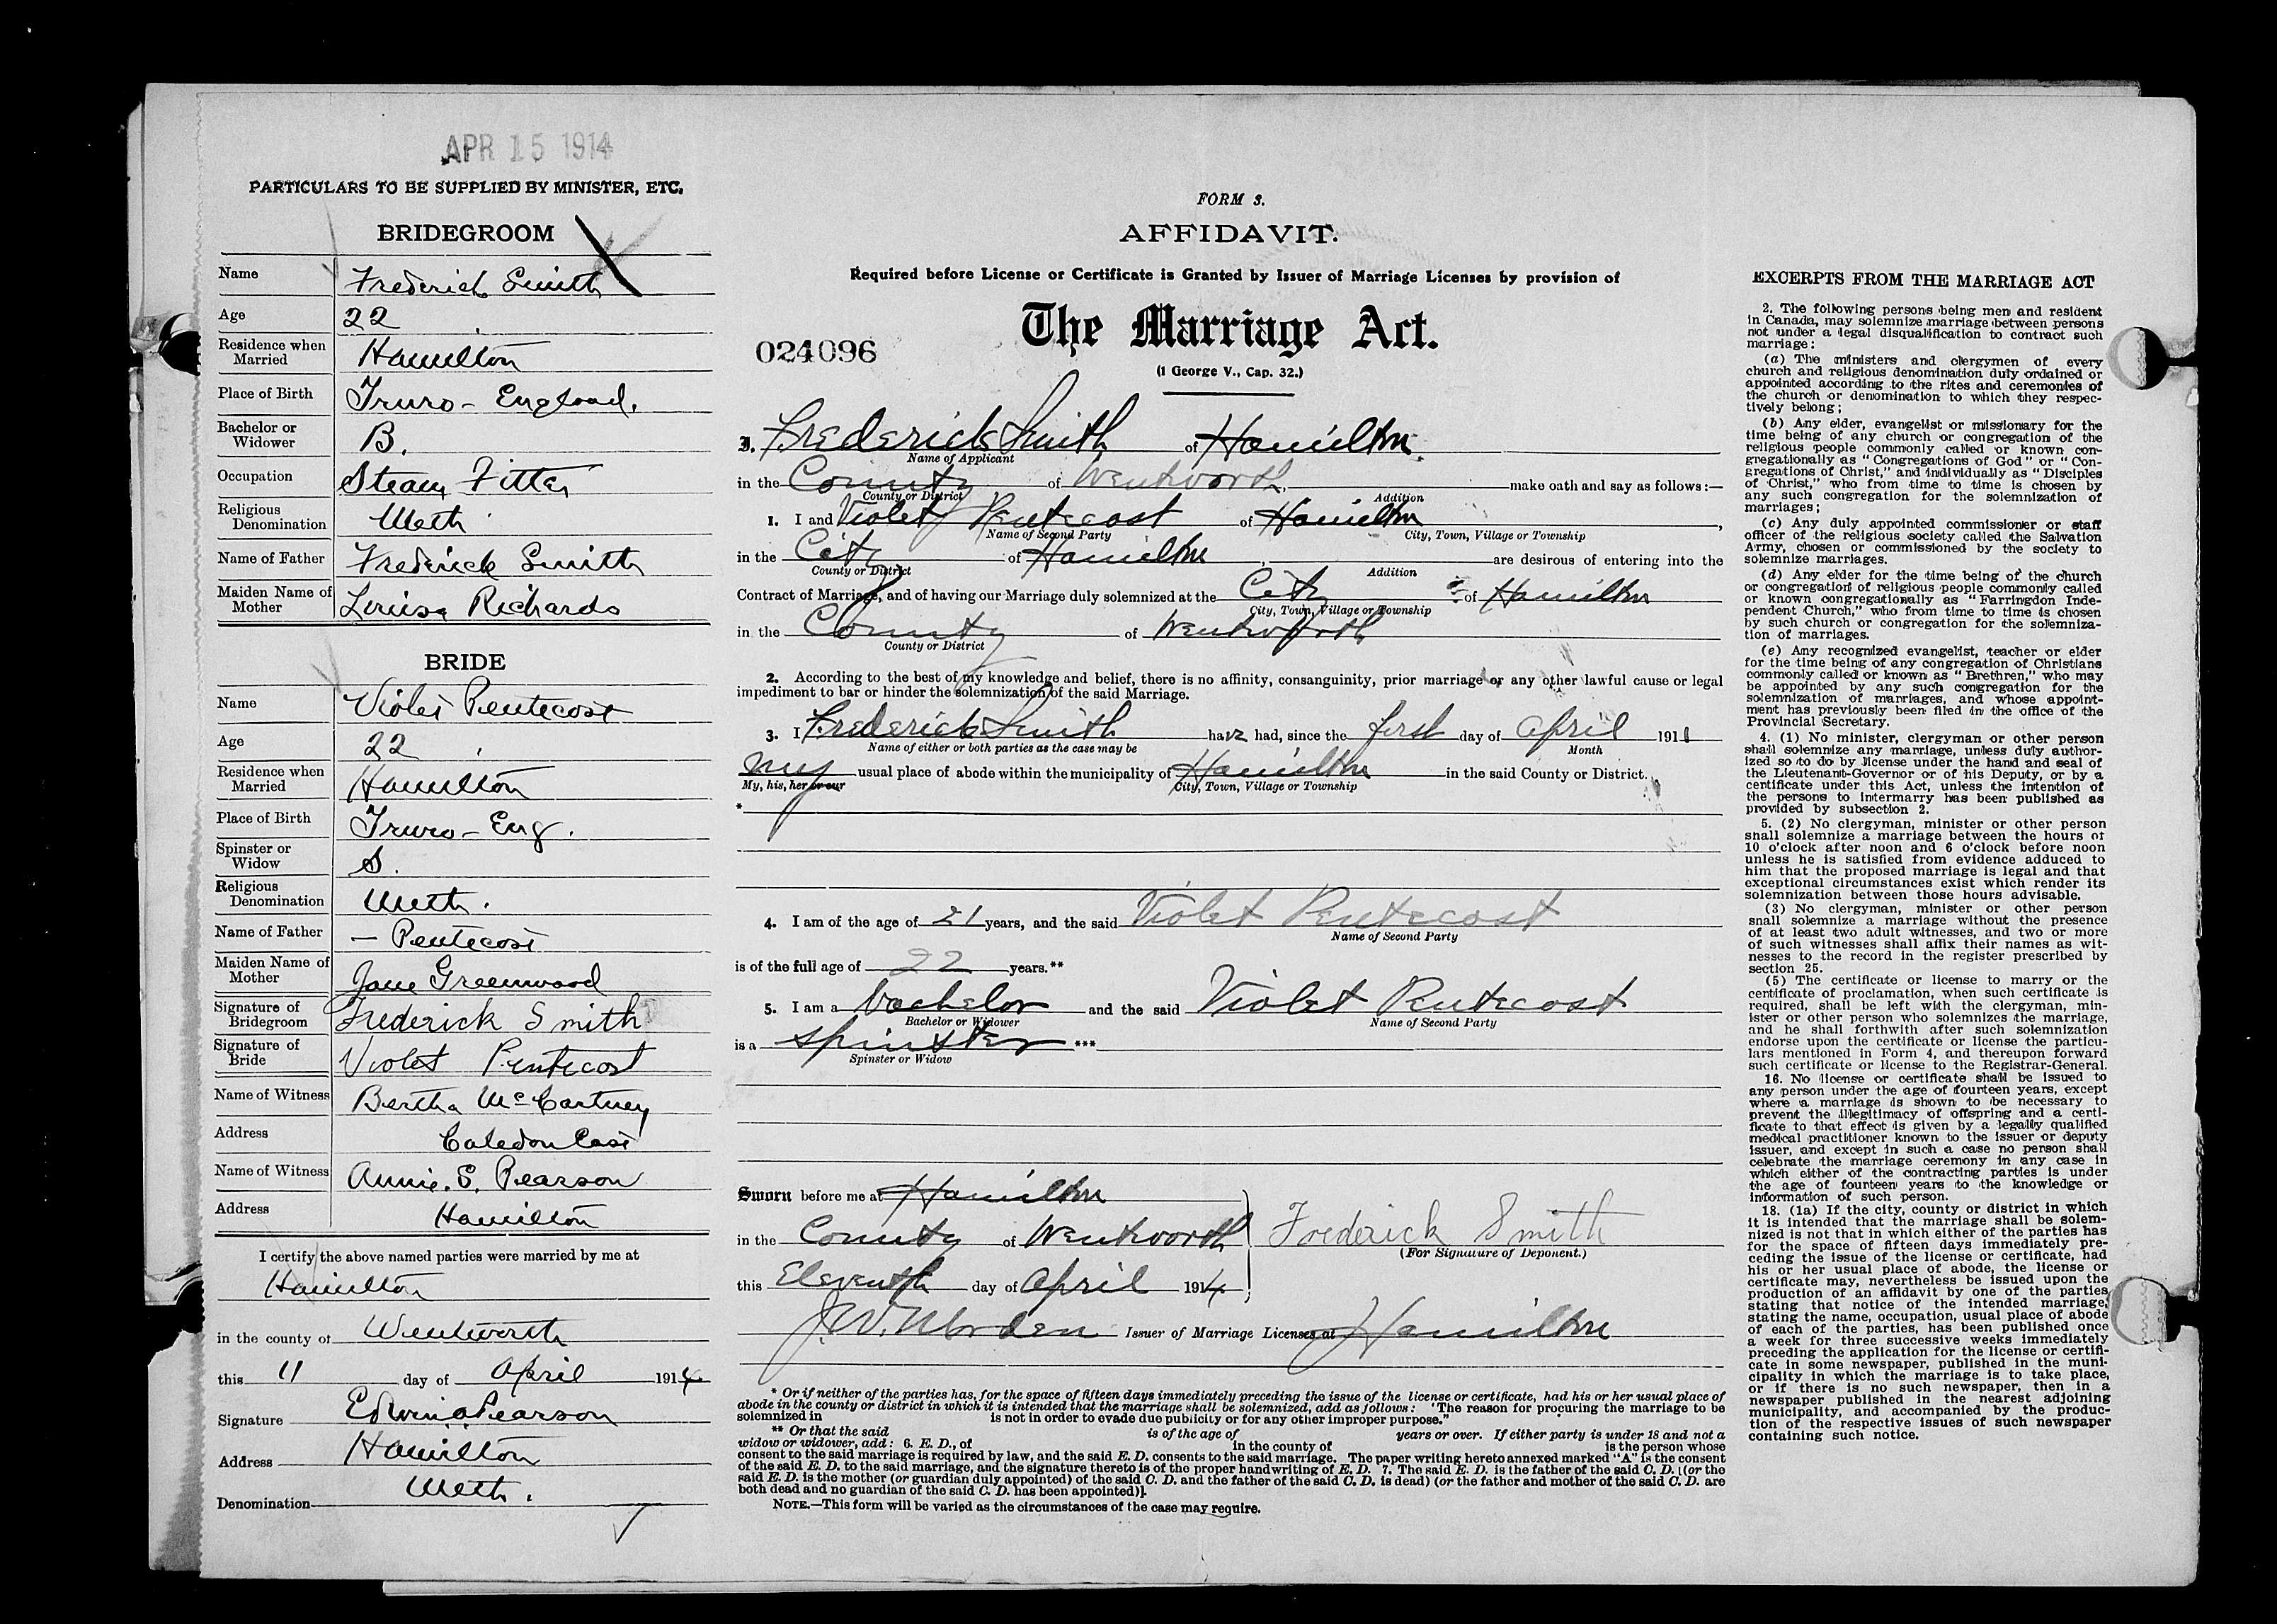 APR 15 1914
PARTICULARS TO BE SUPPLIED BY MINISTER, ETC.
BRIDEGROOM
Name Frederick Smith
Age 22
Residence when Married Hamilton
Place of Birth Truro - England.
Bachelor or Widower B.
Occupation Steam Fitter
Religious Denomination Meth
Name of Father Frederick Smith
Maiden Name of Mother Louisa Richards
BRIDE
Name Violet Pentecost
Age 22
Residence when Married Hamilton
Place of Birth Truro - Eng.
Spinster or Widow S.
Religious Denomination Meth.
Name of Father — Pentecost
Maiden Name of Mother Jane Greenwood
Signature of Bridegroom Frederick Smith
Signature of Bride Violet Pentecost
Name of Witness Bertha McCartney
Address Caledon East
Name of Witness Annie. S. Pearson
Address Hamilton
I certify the above named parties were married by me at
Hamilton
in the county of Wentworth
this 11 day of April 1914
Signature Edwin A Pearson
Address Hamilton
Denomination Meth.
FORM 3.
AFFIDAVIT.
Required before License or Certificate is Granted by Issuer of Marriage Licenses by provision of
The Marriage Act.
024096
(1 George V., Cap. 32.)
I. Frederick Smith of Hamilton
Name of Applicant
in the County of Wentworth make oath and say as follows:—
County or District Addition
1. I and Violet Pentecost of Hamilton,
Name of Second Party City, Town, Village or Township
in the City of Hamilton are desirous of entering into the
County or District Addition
Contract of Marriage, and of having our Marriage duly solemnized at the City of Hamilton
City, Town, Village or Township
in the County of Wentworth
County or District
2. According to the best of my knowledge and belief, there is no affinity, consanguinity, prior marriage or any other lawful cause or legal
impediment to bar or hinder the solemnization of the said Marriage.
3. I Frederick Smith have had, since the first day of April 191
Name of either or both parties as the case may be Month
my usual place of abode within the municipality of Hamilton in the said County or District.
My, his, her or our City, Town, Village or Township
*
4. I am of the age of 21 years, and the said Violet Pentecost
Name of Second Party
is of the full age of 22 years.**
5. I am a bachelor and the said Violet Pentecost
Bachelor or Widower Name of Second Party
is a spinster ***
Spinster or Widow
Sworn before me at Hamilton
in the County of Wentworth Frederick Smith
(For Signature of Deponent.)
this Eleventh day of April 1914
J. W. Morden Issuer of Marriage Licenses at Hamilton
* Or if neither of the parties has, for the space of fifteen days immediately preceding the issue of the license or certificate, had his or her usual place of
abode in the county or district in which it is intended that the marriage shall be solemnized, add as follows: 'The reason for procuring the marriage to be
solemnized in is not in order to evade due publicity or for any other improper purpose."
** Or that the said is of the age of years or over. If either party is under 18 and not a
widow or widower, add: 6. E. D., of in the county of is the person whose
consent to the said marriage is required by law, and the said E. D. consents to the said marriage. The paper writing hereto annexed marked "A" is the consent
of the said E. D. to the said marriage, and the signature thereto is of the proper handwriting of E. D. 7. The said E. D. is the father of the said C. D. [(or the
said E. D. is the mother (or guardian duly appointed) of the said C. D. and the father of the said C. D. is dead) (or the father and mother of the said C. D. are
both dead and no guardian of the said C. D. has been appointed)].
NOTE.—This form will be varied as the circumstances of the case may require.
EXCERPTS FROM THE MARRIAGE ACT
2. The following persons being men and resident
in Canada, may solemnize marriage between persons
not under a legal disqualification to contract such
marriage:
(a) The ministers and clergymen of every
church and religious denomination duly ordained or
appointed according to the rites and ceremonies of
the church or denomination to which they respec-
tively belong;
(b) Any elder, evangelist or missionary for the
time being of any church or congregation of the
religious people commonly called or known con-
gregationally as "Congregations of God" or "Con-
gregations of Christ," and individually as "Disciples
of Christ," who from time to time is chosen by
any such congregation for the solemnization of
marriages;
(c) Any duly appointed commissioner or staff
officer of the religious society called the Salvation
Army, chosen or commissioned by the society to
solemnize marriages.
(d) Any elder for the time being of the church
or congregation of religious people commonly called
or known congregationally as "Farringdon Inde-
pendent Church," who from time to time is chosen
by such church or congregation for the solemniza-
tion of marriages.
(e) Any recognized evangelist, teacher or elder
for the time being of any congregation of Christians
commonly called or known as "Brethren," who may
be appointed by any such congregation for the
solemnization of marriages, and whose appoint-
ment has previously been filed in the office of the
Provincial Secretary.
4. (1) No minister, clergyman or other person
shall solemnize any marriage, unless duly author-
ized so to do by license under the hand and seal of
the Lieutenant-Governor or of his Deputy, or by a
certificate under this Act, unless the intention of
the persons to intermarry has been published as
provided by subsection 2.
5. (2) No clergyman, minister or other person
shall solemnize a marriage between the hours of
10 o'clock after noon and 6 o'clock before noon
unless he is satisfied from evidence adduced to
him that the proposed marriage is legal and that
exceptional circumstances exist which render its
solemnization between those hours advisable.
(3) No clergyman, minister or other person
shall solemnize a marriage without the presence
of at least two adult witnesses, and two or more
of such witnesses shall affix their names as wit-
nesses to the record in the register prescribed by
section 25.
(5) The certificate or license to marry or the
certificate of proclamation, when such certificate is
required, shall be left with the clergyman, min-
ister or other person who solemnizes the marriage,
and he shall forthwith after such solemnization
endorse upon the certificate or license the particu-
lars mentioned in Form 4, and thereupon forward
such certificate or license to the Registrar-General.
16. No license or certificate shall be issued to
any person under the age of fourteen years, except
where a marriage is shown to be necessary to
prevent the illegitimacy of offspring and a certi-
ficate to that effect is given by a legally qualified
medical practitioner known to the issuer or deputy
issuer, and except in such a case no person shall
celebrate the marriage ceremony in any case in
which either of the contracting parties is under
the age of fourteen years to the knowledge or
information of such person.
18. (1a) If the city, county or district in which
it is intended that the marriage shall be solem-
nized is not that in which either of the parties has
for the space of fifteen days immediately pre-
ceding the issue of the license or certificate, had
his or her usual place of abode, the license or
certificate may, nevertheless be issued upon the
production of an affidavit by one of the parties
stating that notice of the intended marriage,
stating the name, occupation, usual place of abode
of each of the parties, has been published once
a week for three successive weeks immediately
preceding the application for the license or certifi-
cate in some newspaper, published in the muni-
cipality in which the marriage is to take place,
or if there is no such newspaper, then in a
newspaper published in the nearest adjoining
municipality, and accompanied by the produc-
tion of the respective issues of such newspaper
containing such notice.